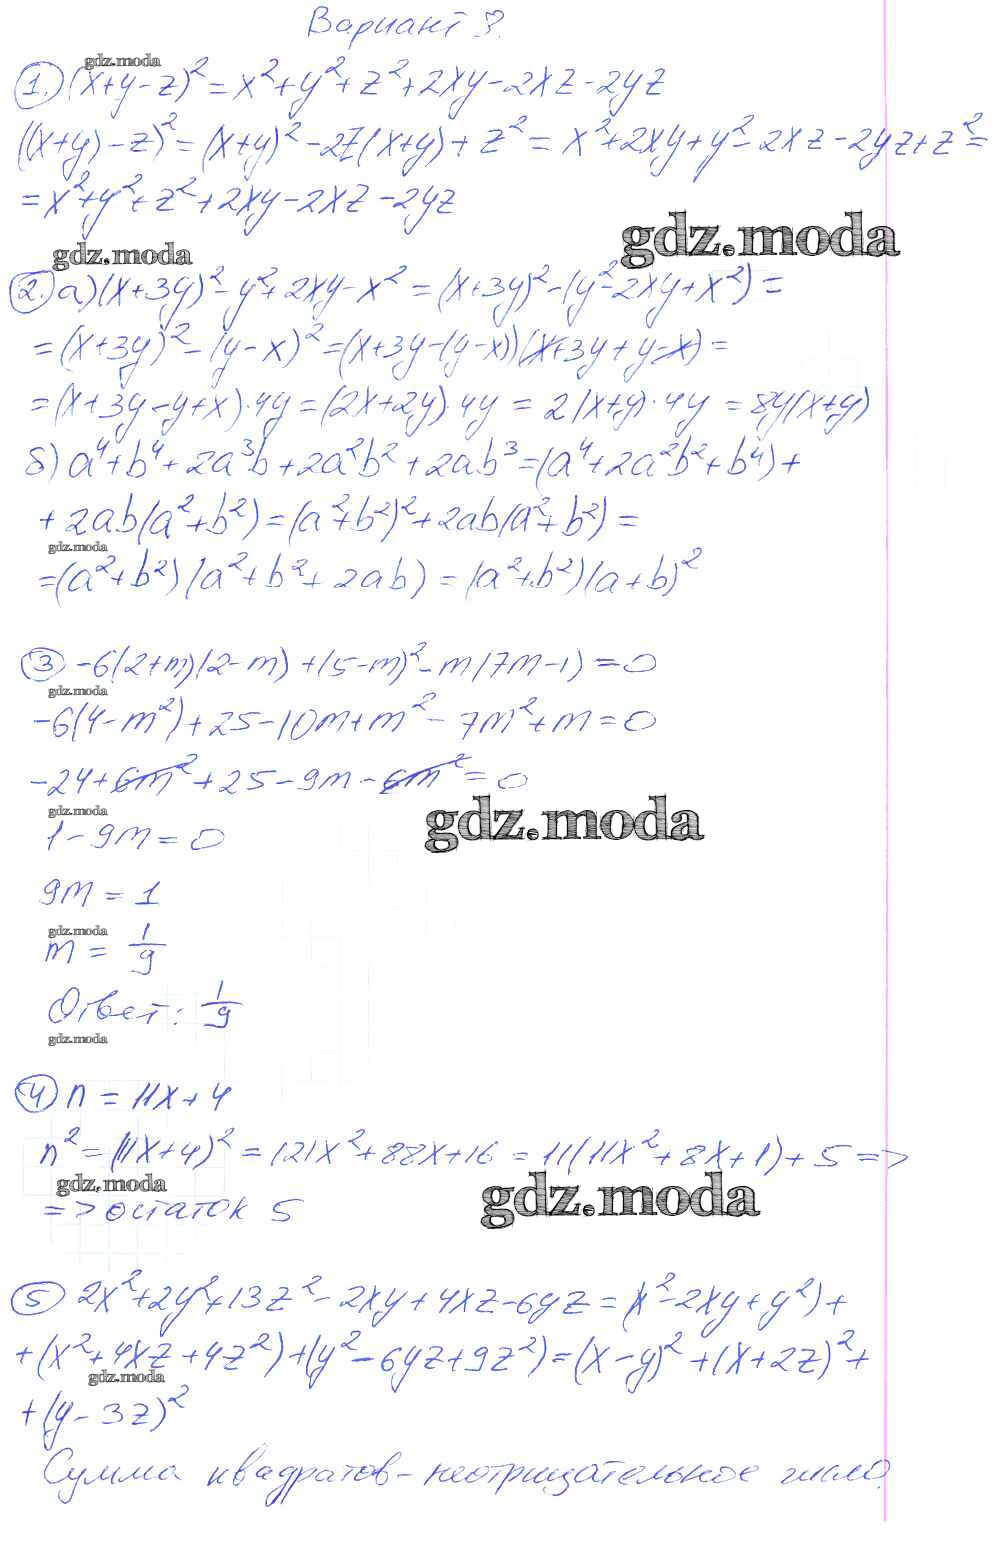 Вариант 3.
gdz.moda
1. (x+y-z)² = x²+y²+z²+2xy-2xz-2yz
((x+y)-z)² = (x+y)²-2z(x+y)+z² = x²+2xy+y²-2xz-2yz+z² =
= x²+y²+z²+2xy-2xz-2yz
gdz.moda
gdz.moda
2. а) (x+3y)²-y²+2xy-x² = (x+3y)²-(y²-2xy+x²) =
= (x+3y)²-(y-x)² = (x+3y-(y-x))(x+3y+y-x) =
= (x+3y-y+x)·4y = (2x+2y)·4y = 2(x+y)·4y = 8y(x+y)
б) a⁴+b⁴+2a³b+2a²b²+2ab³ = (a⁴+2a²b²+b⁴)+
+2ab(a²+b²) = (a²+b²)²+2ab(a²+b²) =
gdz.moda
= (a²+b²)(a²+b²+2ab) = (a²+b²)(a+b)²
3 -6(2+m)(2-m)+(5-m)²-m(7m-1) = 0
gdz.moda
-6(4-m²)+25-10m+m²-7m²+m = 0
-24+6m²+25-9m-6m² = 0
gdz.moda
gdz.moda
1-9m = 0
9m = 1
gdz.moda
m = 1/9
Ответ: 1/9
gdz.moda
4 n = 11x+4
n² = (11x+4)² = 121x²+88x+16 = 11(11x²+8x+1)+5 =>
gdz.moda
gdz.moda
=> остаток 5
5 2x²+2y²+13z²-2xy+4xz-6yz = (x²-2xy+y²)+
+(x²+4xz+4z²)+(y²-6yz+9z²) = (x-y)²+(x+2z)²+
gdz.moda
+(y-3z)²
Сумма квадратов - неотрицательное число.